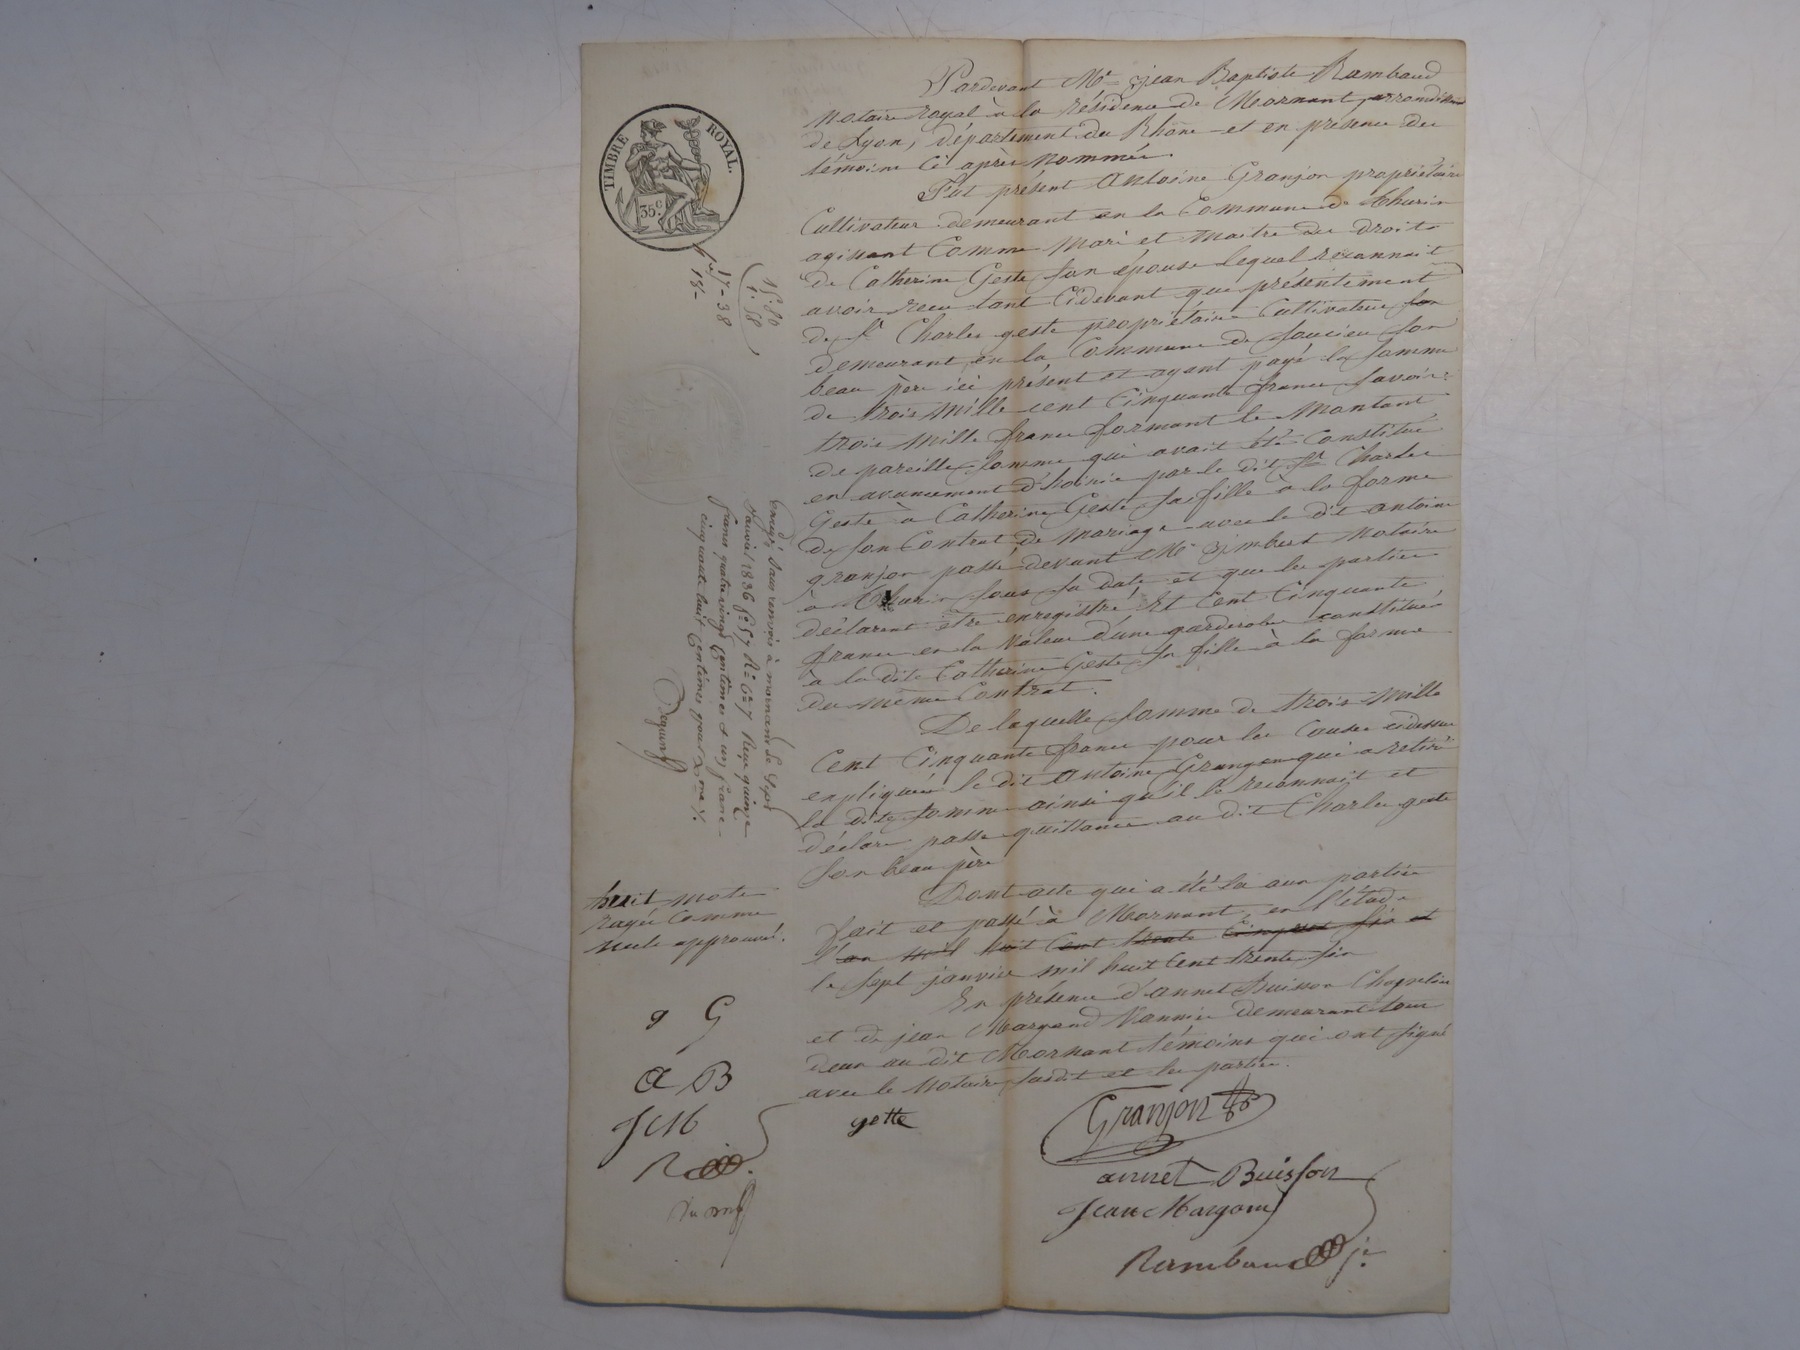 TIMBRE ROYAL.
35c.
Pardevant Me jean Baptiste Rambaud
Notaire royal à la résidence de Mornant, arrondissement
de Lyon, département du Rhône et en présence des
témoins ci après nommés.
Fut présent Antoine Granjon propriétaire
Cultivateur demeurant en la Commune de thurin
agissant Comme Mari et Maitre des droits
de Catherine Geste son épouse lequel reconnait
avoir recu tant Cidevant que présentement
de Sr Charles geste propriétaire Cultivateur son
demeurant en la Commune de Soucieu son
beau père ici présent et ayant payé la somme
de trois Mille cent Cinquante francs Savoir:
trois Mille francs formant le Montant
de pareille somme qui avait été Constituée
en avancement d'hoirie par le dit Sr Charles
Geste à Catherine Geste sa fille à la forme
de son Contrat de Mariage avec le dit Antoine
granjon passé devant Me Imbert Notaire
à thurin sous sa date et que les parties
déclarent être enregistré, Et Cent Cinquante
francs en la Valeur d'une garderobe constituée
à la dite Catherine Geste sa fille à la forme
du même Contrat.
De laquelle somme de trois Mille
Cent Cinquante francs pour les Causes cidessus
expliquées le dit Antoine Granjon qui a retiré
la dite somme ainsi qu'il le reconnait et
déclare passe quittance au dit Charles geste
son beau père
Dont acte qui a été lu aux parties
fait et passé à Mornant, en l'étude
l'an mil huit Cent trente Cinq six et
le sept janvier mil huit Cent trente six
En présence d'annet Buisson Chapelier
et de jean Margand Vannier demeurant tous
deux au dit Mornant témoins qui ont signé
avec le Notaire susdit et les parties.
gette
Granjon
annet Buisson
Jean Margand
Rambaud je
15.80
1.58
17-38
18-
Enregé sans renvois à mornant le sept
Janvier 1836 fo 57 Ro Ce 7 Reçu quinze
francs quatre vingt Centimes et un franc
cinquante huit Centimes pour xme /.
huit mots
rayés Comme
nuls approuvé.
g G
a B
J M
R